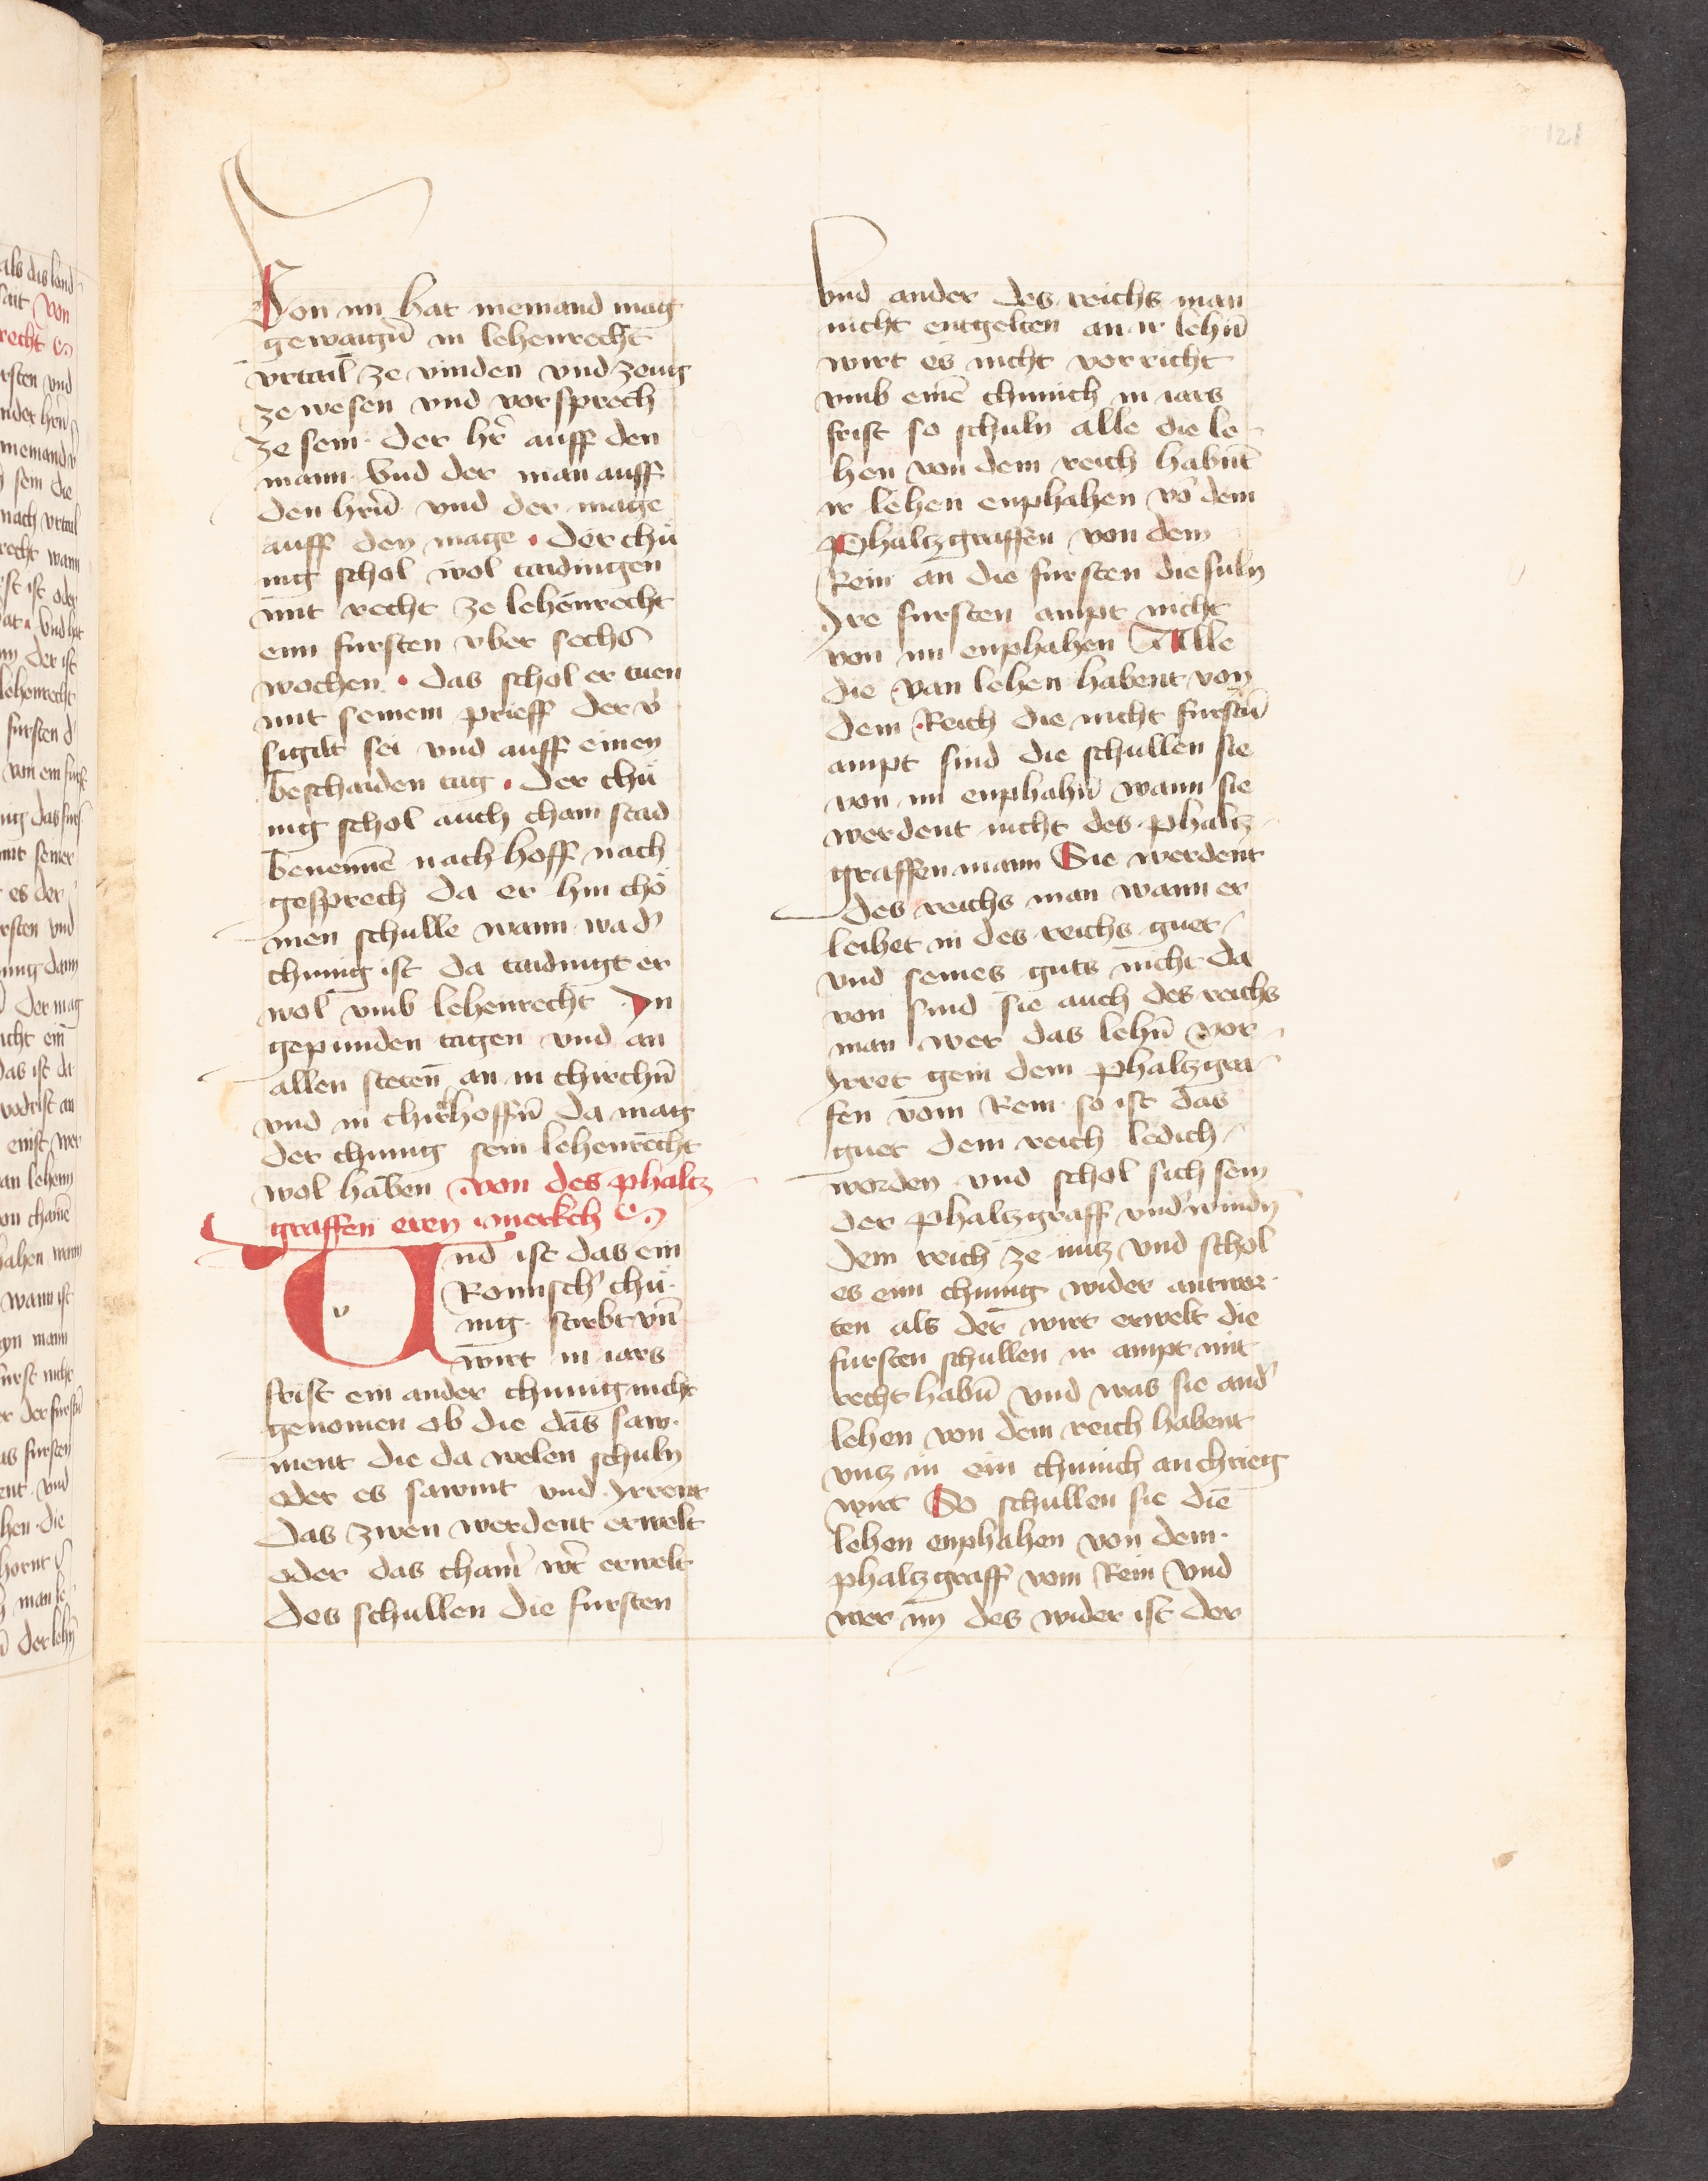 121
von im hat niemand mag
gewaigñ in lehenrecht
vrtail ze vinden vnd zeug
ze wesen vnd vorsprech
ze sein · der hr̄ auff den
mann · Vnd der man auff
den hrñ vnd der mage
auff den mage · der chü
nig schol wol taidingen
mit recht ze lehenrecht
eim fursten vber sechs
wochen · das schol er tuen
mit seinem prieff der v̾
sigilt sei vnd auff einen
beschaiden tag · der chü
nig schol auch cham stad
benennē nach hoff nach
gesprech da er hin chö
men schulle wann wa d̾
chunig ist da taidingt er
wol vmb lehenrecht · In
gepunden tagen vnd an
allen steteñ an in chirchñ
vnd in chirchoffñ da mag
der chunig sein lehenrecht
wol haben von des phaltz
graffen eren merkch
Und ist das ein
Romisch̾ chü·
nig · stirbt vñ
wirt in iars
frist ein ander chunig nicht
genomen ob die das saw·
ment die da welen schuln
oder es sawmt vnd Jrrent
das zwen werdent erwelt
oder das chain̾ wr̄t erwelt
des schullen die fursten
vnd ander des reichs man
nicht entgelten an ir lehñ
wirt es nicht vorricht
vmb einē chunich in iars
frist so schuln alle die le
hen von dem reich habñt
ir lehen enphahen vō dem
Phaltzgraffen von dem
Rein an die fursten die suln
Jre fursten ampt nicht
von im enphahen Alle
die van lehen habent von
dem Reich die nicht furstñ
ampt sind die schullen sie
von im enphahñ wann sie
werdent nicht des phaltz
graffen mann Sie werdent
des reichs man wann er
leihet in des reichs guet
vnd seines guts nicht da
von sind sie auch des reichs
man wer das lehñ vor
Jrret gein dem phaltzgra
fen vom Rein · so ist das
guet dem reich ledich
worden vnd schol sich sein
der phaltzgraff vnd̾windn̄
dem reich ze nutz vnd schol
es eim chunig wider antwor·
ten als der wirt erwelt die
fursten schullen ir ampt mit
recht habñ vnd was sie and̾
lehen von dem reich habent
vntz in ein chunich an chrieg
wirt So schullen sie die
lehen enphahen von dem·
phaltzgraff vom Rein Vnd
wer im des wider ist der